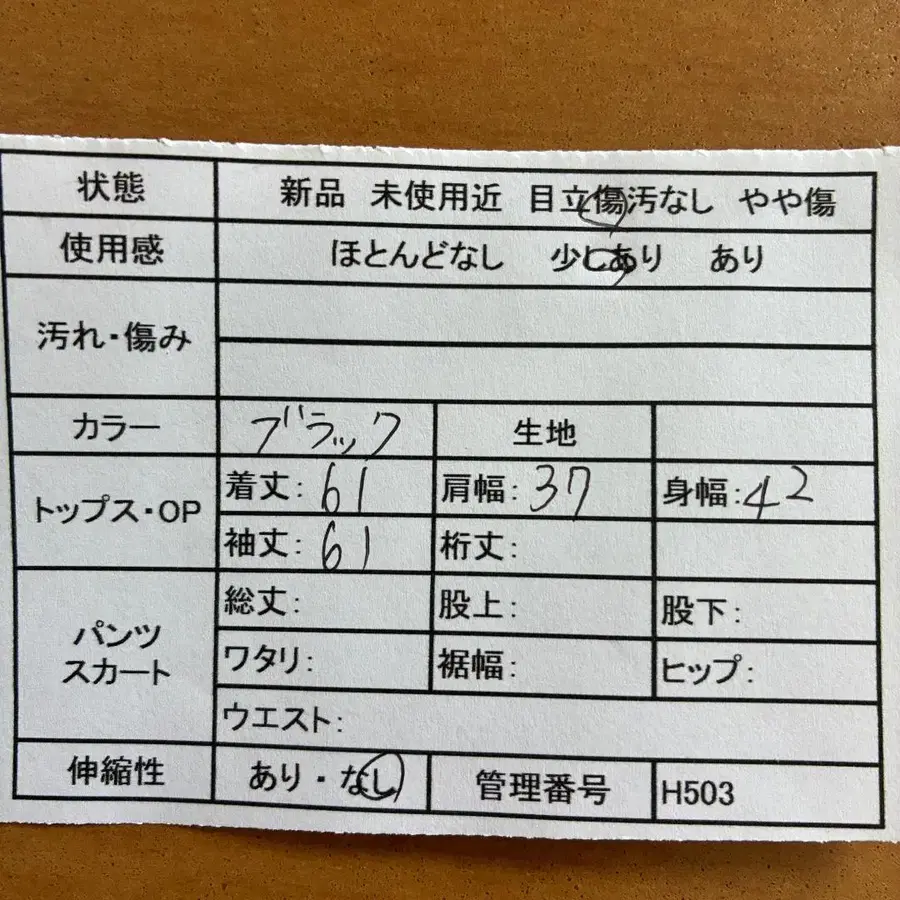 状態 新品 未使用近 目立傷汚なし やや傷
使用感 ほとんどなし 少しあり あり
汚れ・傷み
カラー ブラック 生地
トップス・OP 着丈: 61 肩幅: 37 身幅: 42
袖丈: 61 裄丈:
パンツ スカート 総丈: 股上: 股下:
ワタリ: 裾幅: ヒップ:
ウエスト:
伸縮性 あり・なし 管理番号 H503